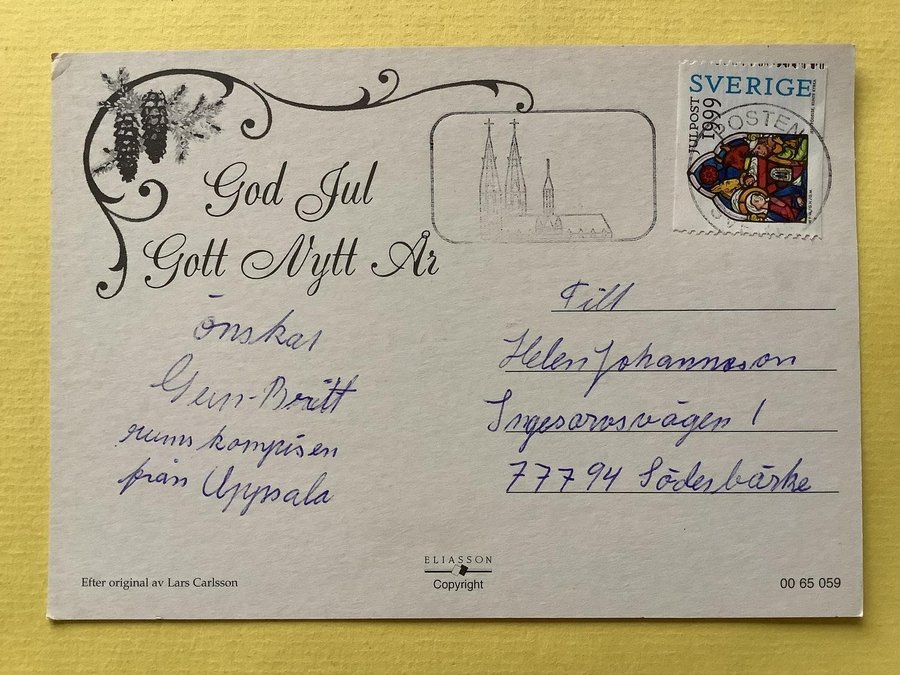 SVERIGE
JULPOST
1999
POSTEN
God Jul
Gott Nytt År
önskar
Gun-Britt
rums kompisen
från Uppsala
Till
Helen Johannsson
Ingesarvsvägen 1
77794 Söderbärke
ELIASSON
Copyright
Efter original av Lars Carlsson
00 65 059